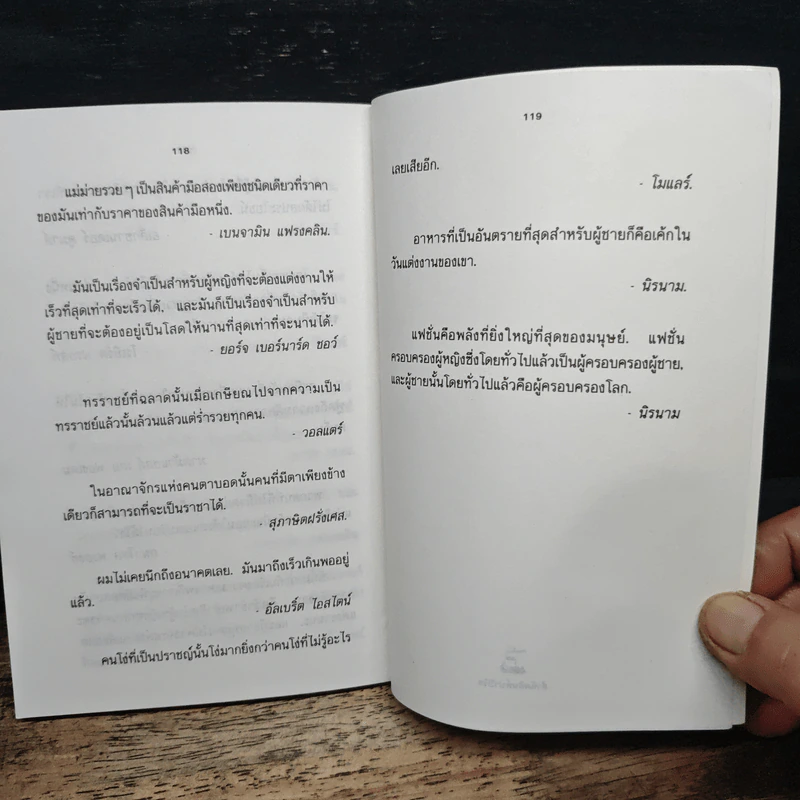 118
แม่ม่ายรวย ๆ เป็นสินค้ามือสองเพียงชนิดเดียวที่ราคา
ของมันเท่ากับราคาของสินค้ามือหนึ่ง.
- เบนจามิน แฟรงคลิน.
มันเป็นเรื่องจำเป็นสำหรับผู้หญิงที่จะต้องแต่งงานให้
เร็วที่สุดเท่าที่จะเร็วได้. และมันก็เป็นเรื่องจำเป็นสำหรับ
ผู้ชายที่จะต้องอยู่เป็นโสดให้นานที่สุดเท่าที่จะนานได้.
- ยอร์จ เบอร์นาร์ด ชอว์
ทรราชย์ที่ฉลาดนั้นเมื่อเกษียณไปจากความเป็น
ทรราชย์แล้วนั้นล้วนแล้วแต่ร่ำรวยทุกคน.
- วอลแตร์
ในอาณาจักรแห่งคนตาบอดนั้นคนที่มีตาเพียงข้าง
เดียวก็สามารถที่จะเป็นราชาได้.
- สุภาษิตฝรั่งเศส.
ผมไม่เคยนึกถึงอนาคตเลย. มันมาถึงเร็วเกินพออยู่
แล้ว.
- อัลเบริ์ต ไอสไตน์
คนโง่ที่เป็นปราชญ์นั้นโง่มากยิ่งกว่าคนโง่ที่ไม่รู้อะไร
119
เลยเสียอีก.
- โมแลร์.
อาหารที่เป็นอันตรายที่สุดสำหรับผู้ชายก็คือเค้กใน
วันแต่งงานของเขา.
- นิรนาม.
แฟชั่นคือพลังที่ยิ่งใหญ่ที่สุดของมนุษย์. แฟชั่น
ครอบครองผู้หญิงซึ่งโดยทั่วไปแล้วเป็นผู้ครอบครองผู้ชาย.
และผู้ชายนั้นโดยทั่วไปแล้วคือผู้ครอบครองโลก.
- นิรนาม